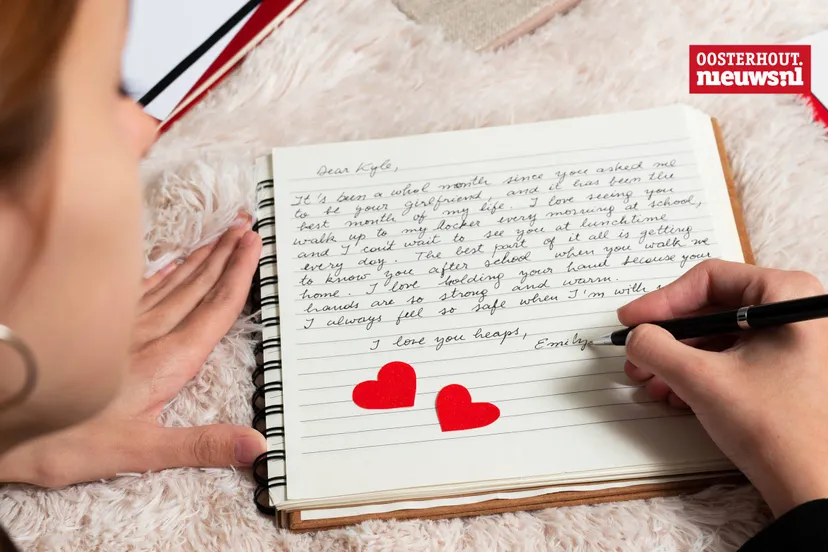 OOSTERHOUT.
nieuws.nl
Dear Kyle,
It's been a whole month since you asked me
to be your girlfriend, and it has been the
best month of my life. I love seeing you
walk up to my locker every morning at school,
and I can't wait to see you at lunchtime
every day. The best part of it all is getting
to know you after school when you walk me
home. I love holding your hand because your
hands are so strong and warm.
I always feel so safe when I'm with
I love you heaps, Emily